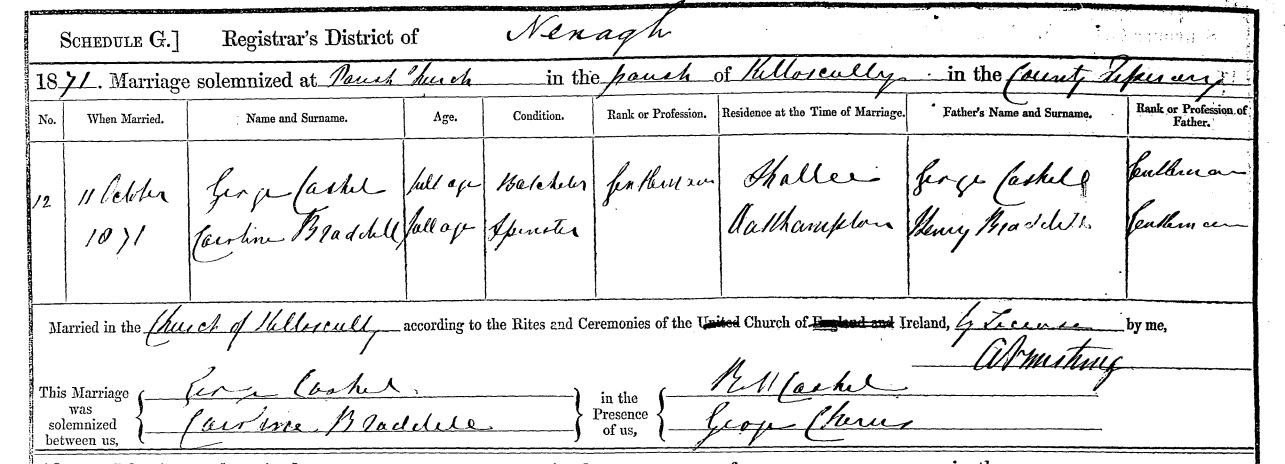 SCHEDULE G.] Registrar's District of Nenagh
1871. Marriage solemnized at Parish Church in the parish of Killoscully in the County Tipperary
No. When Married. Name and Surname. Age. Condition. Rank or Profession. Residence at the Time of Marriage. Father's Name and Surname. Rank or Profession of Father.
12 11 October George Caskel full age Batcheler Gentleman Shallee George Caskell Gentleman
1871 Caroline Braddell full age Spinster Oakhampton Henry Braddell Gentleman
Married in the Church of Killoscully according to the Rites and Ceremonies of the United Church of England and Ireland, by License by me,
Armstrong
This Marriage was solemnized between us, George Caskel in the Presence of us, Caskel
Caroline Braddell George